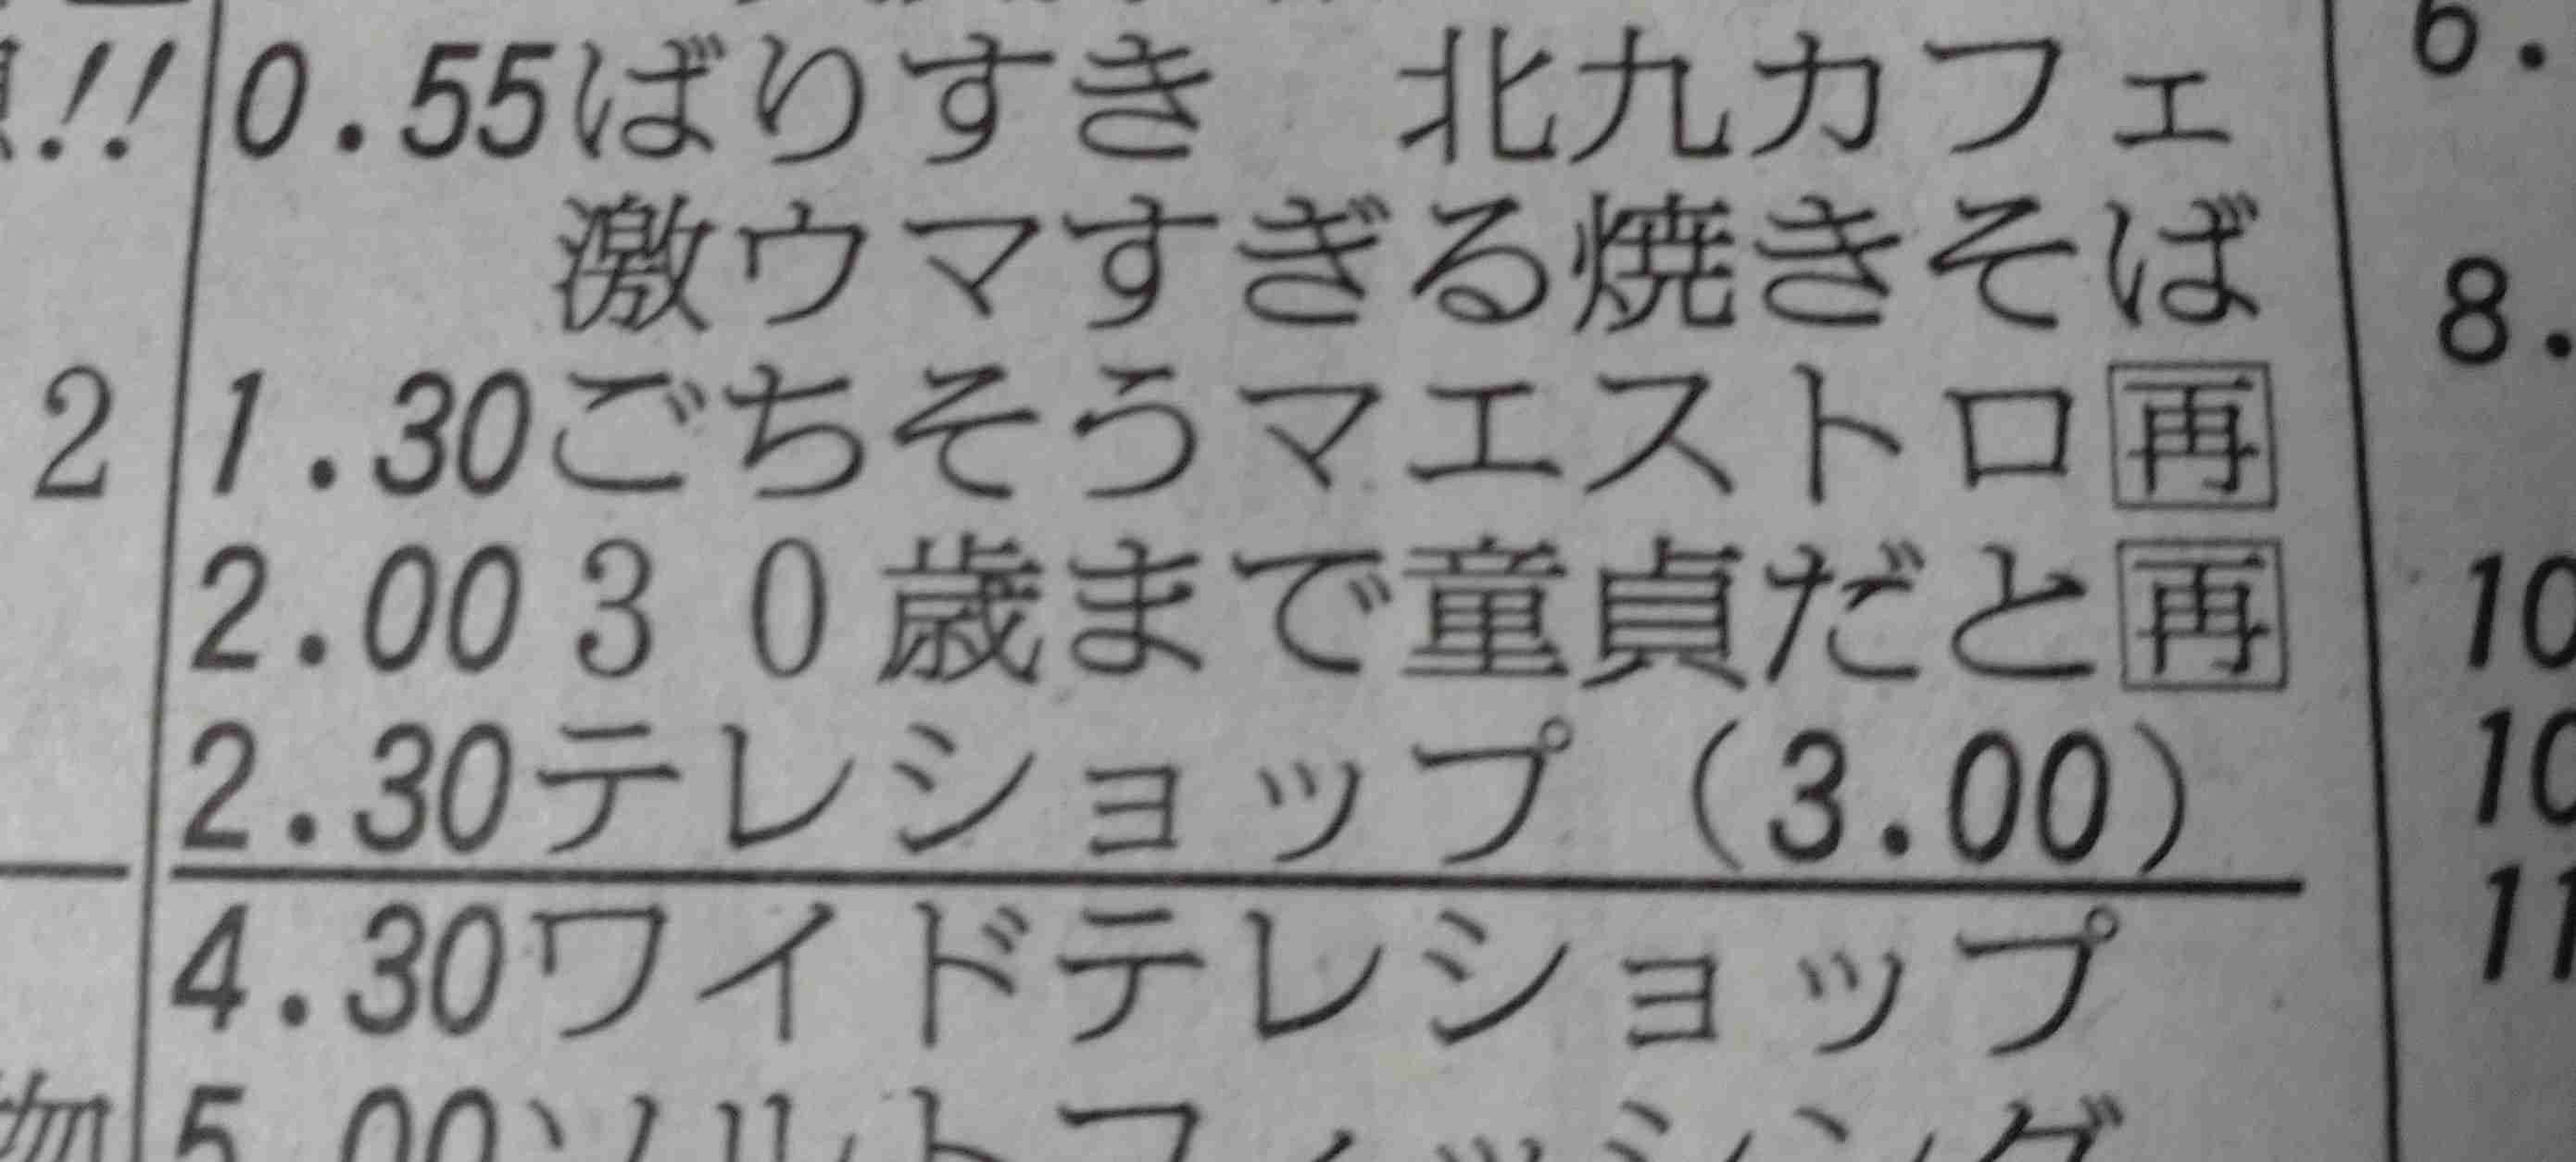 !!
0.55ばりすき 北九カフェ
激ウマすぎる焼きそば
2
1.30ごちそうマエストロ再
2.00 30歳まで童貞だと再
2.30テレショップ(3.00)
4.30ワイドテレショップ
5.00ソルトフィッシング
物
6.
8.
10
10
11